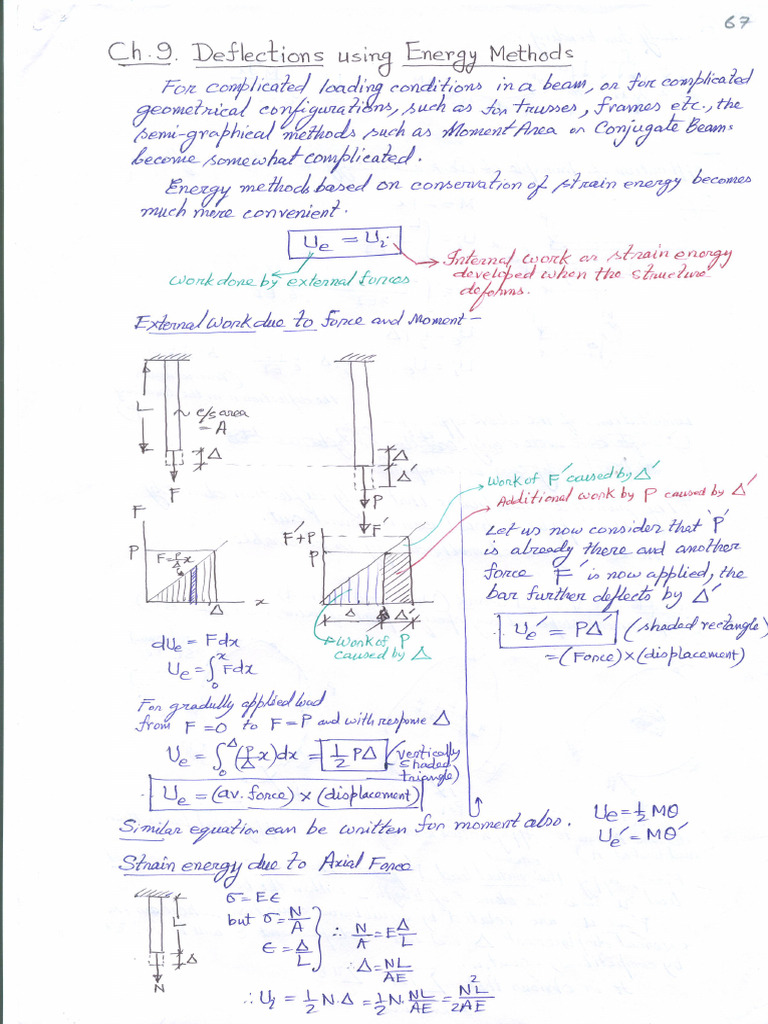 67
Ch.9. Deflections using Energy Methods
For complicated loading conditions in a beam, or for complicated
geometrical configurations, such as for trusses, frames etc., the
semi-graphical methods such as Moment Area or Conjugate Beams
become somewhat complicated.
Energy methods based on conservation of strain energy becomes
much more convenient.
Ue = Ui
Internal work or strain energy
developed when the structure
deforms.
Work done by external forces
External work due to force and Moment -
L
c/s area
= A
Δ
F
Δ
Δ'
P
F'
F
P
F = P/Δ x
Δ
x
F'+P
P
Δ
Δ'
Work of P
caused by Δ
Work of F' caused by Δ'
Additional work by P caused by Δ'
Let us now consider that 'P'
is already there and another
force F' is now applied, the
bar further deflects by Δ'
∴ Ue' = PΔ' (shaded rectangle)
= (Force) x (displacement)
dUe = Fdx
Ue = ∫₀ˣ Fdx
For gradually applied load
from F = 0 to F = P and with response Δ
Ue = ∫₀^Δ (P/Δ x)dx = 1/2 PΔ (vertically shaded triangle)
∴ Ue = (av. force) x (displacement)
Similar equation can be written for moment also. Ue = 1/2 Mθ
Ue' = Mθ'
Strain energy due to Axial Force
L
Δ
N
σ = Eε
but σ = N/A
ε = Δ/L
∴ N/A = E Δ/L
∴ Δ = NL/AE
∴ Ui = 1/2 N.Δ = 1/2 N. NL/AE = N²L/2AE